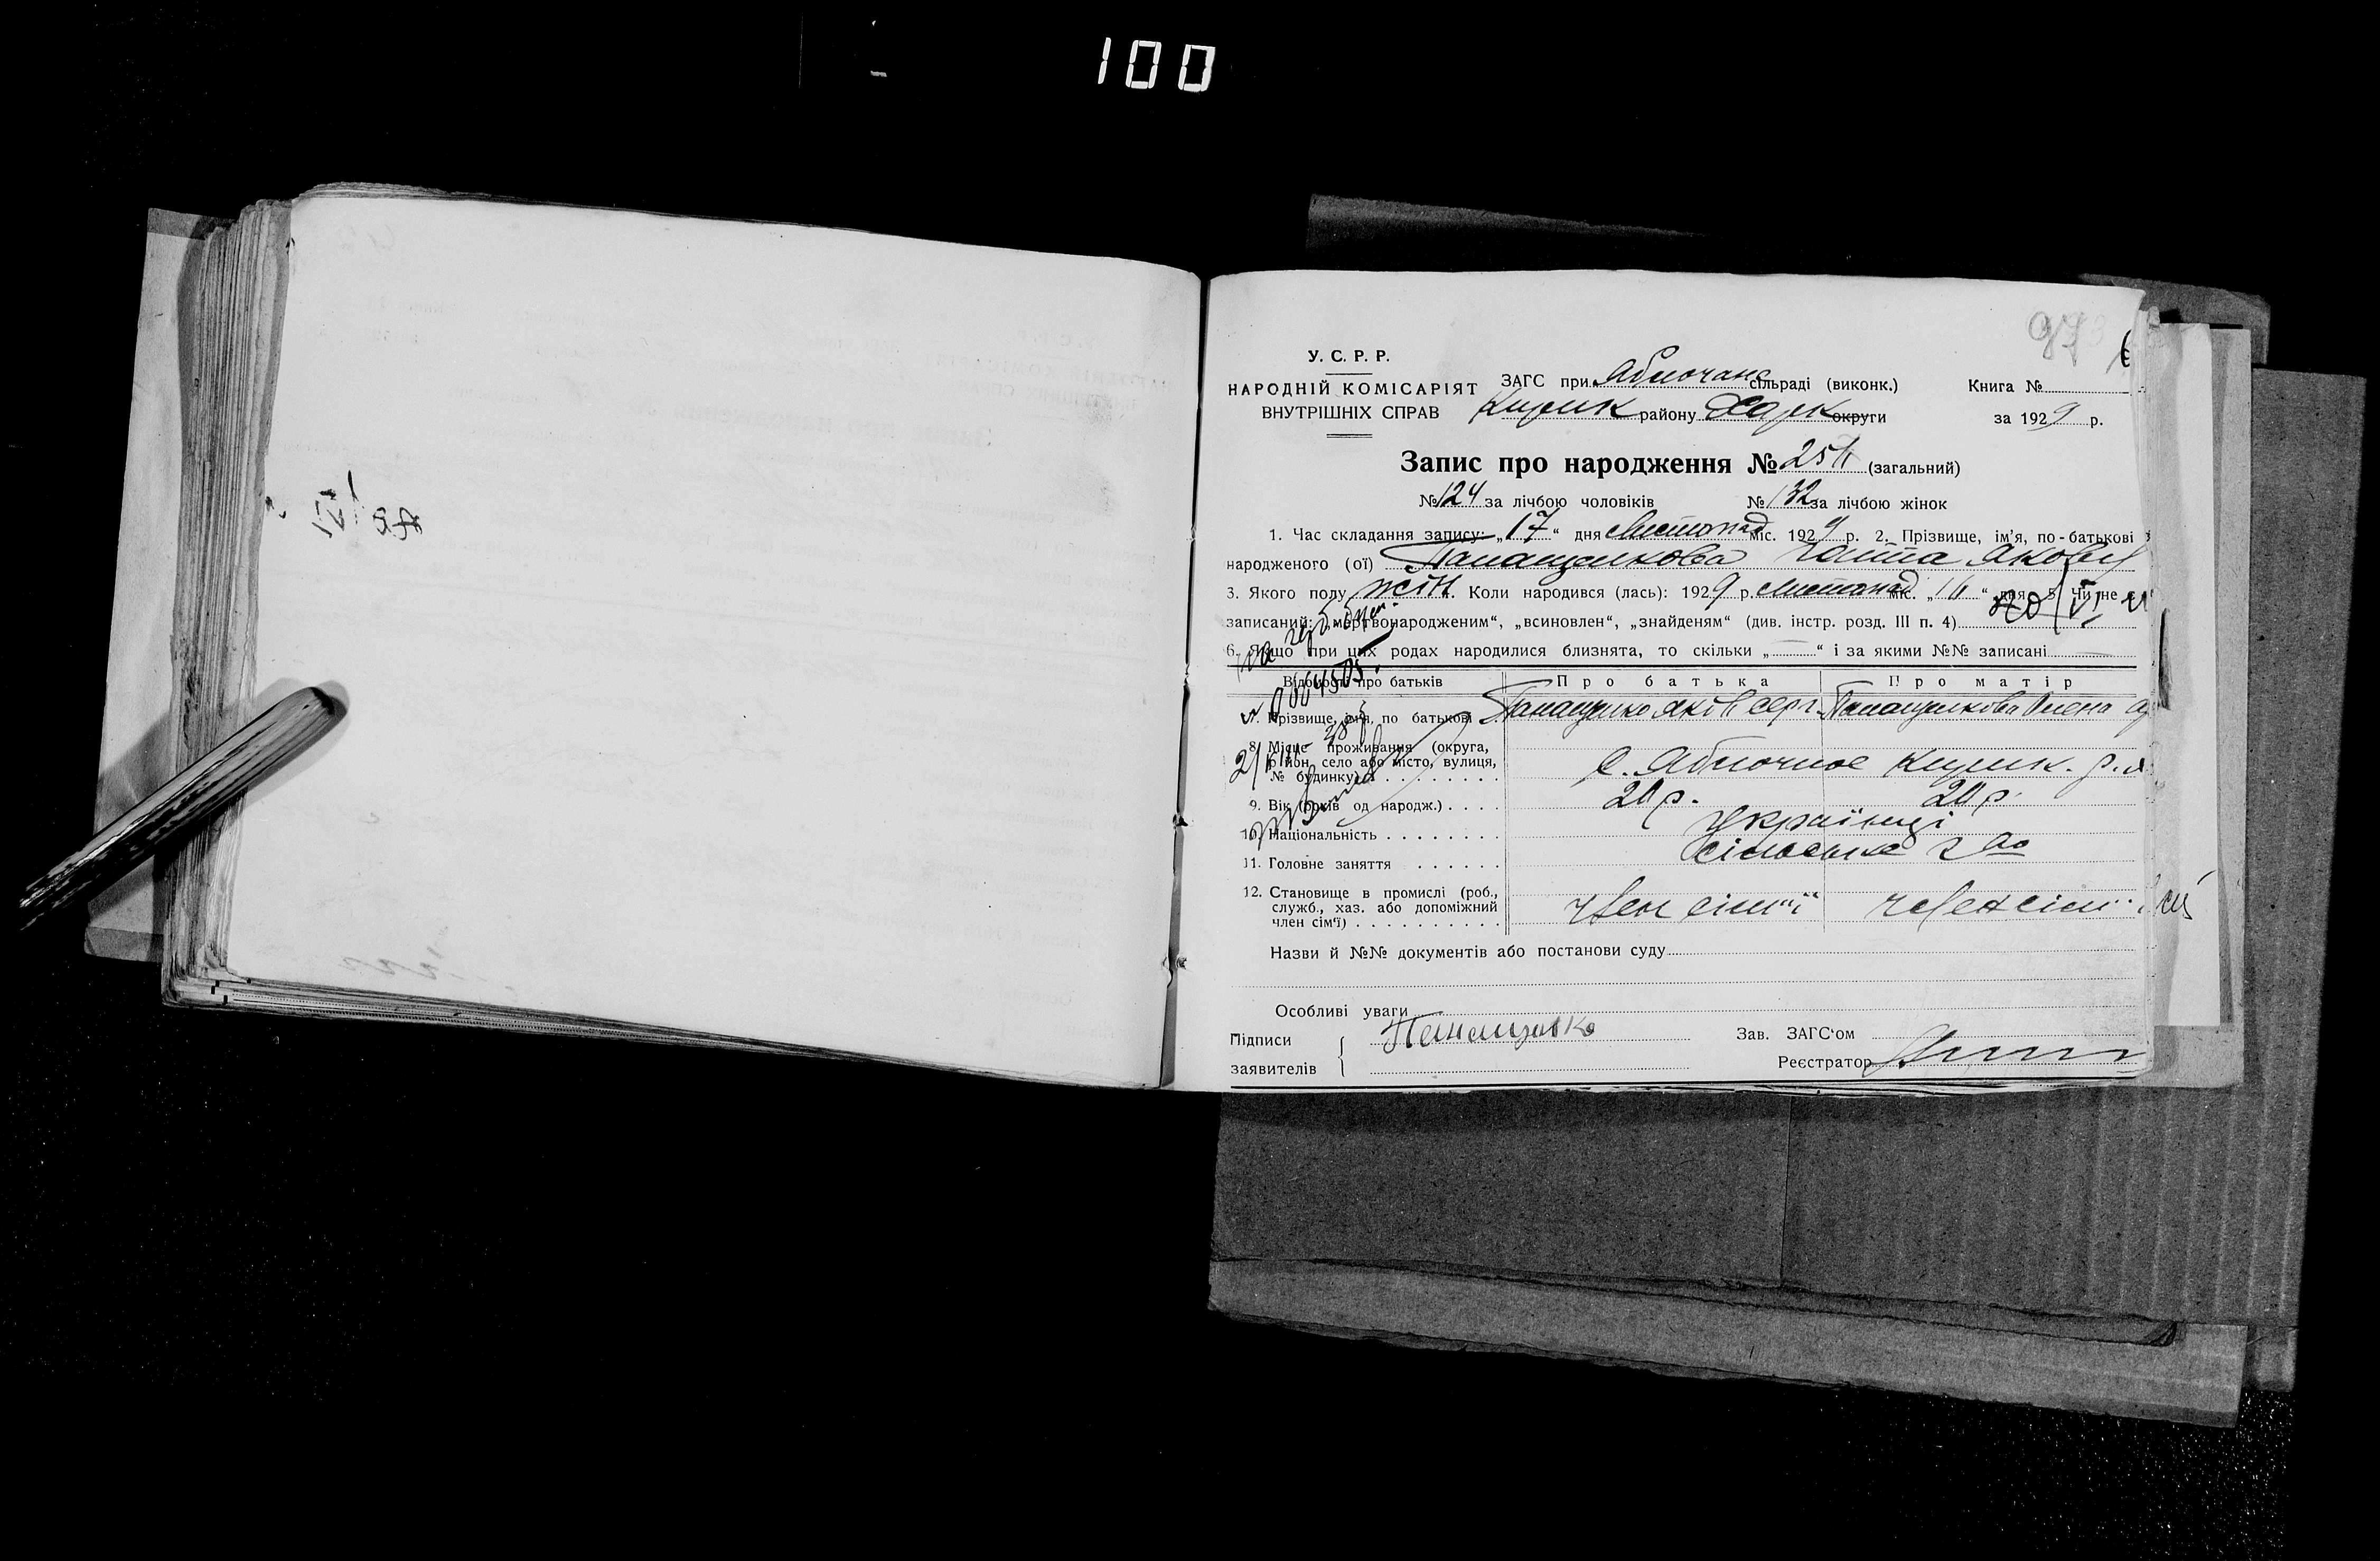 100
973
У. С. Р. Р.
НАРОДНІЙ КОМІСАРІЯТ
ВНУТРІШНІХ СПРАВ
ЗАГС при Яблочанс сільраді (виконк.)
района Харк округи
Книга №
за 1929 р.
Запис про народження № (загальний)
№ 124 за лічбою чоловіків № 132 за лічбою жінок
1. Час складання запису: „17“ дня Листопад міс. 1929 р. 2. Прізвище, ім'я, по-батькові
народженого (ої) Панащенкова Яков
3. Якого полу жін. Коли народився (лась): 1929 р. Листопад міс. „ “ дня 5. Чи не
записаний: „мертвонародженим“, „всиновлен“, „знайденям“ (див. інстр. розд. III п. 4)
6. Якщо при цих родах народилися близнята, то скільки „ “ і за якими №№ записані
Відомості про батьків Про батька Про матір
7. Прізвище, ім'я, по батькові Панащенко Яків Серг. Панащенкова Олена
8. Місце проживання (округа, район, село або місто, вулиця, № будинку) с. Яблочное
9. Вік (років од народж.) 20 р. 20 р.
10. Національність Українці
11. Головне заняття сільське г-во
12. Становище в промислі (роб., служб., хаз. або допоміжний член сім'ї) член сім'ї член сім'ї
Назви й №№ документів або постанови суду
Особливі уваги
Підписи
заявителів
Панащенко
Зав. ЗАГС'ом
Реєстратор